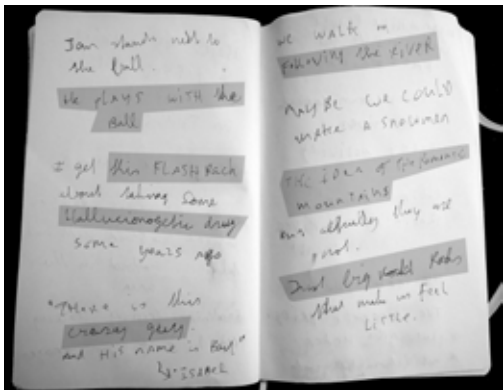 Jan stands next to
the Ball.
He plays with the
Ball
I get this FLASHBack
about taking some
Hallucionogetic drug
some years ago
"There is this
crazy guy.
and His name is Bas"
we walk on
Following the river
maybe we could
make a snowman
The idea of
mountains
they are
Just big Rocks
that make us feel
Little.